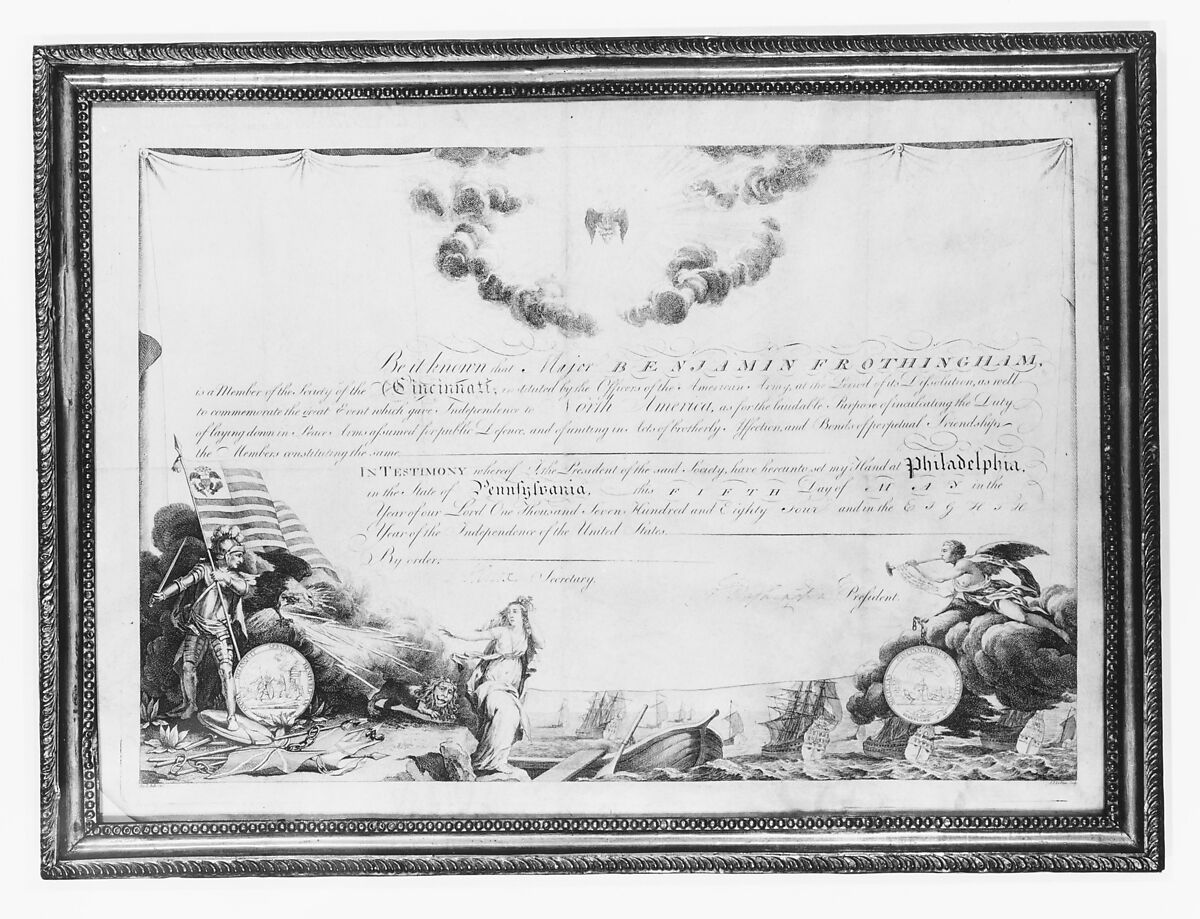 Be it known that Major BENJAMIN FROTHINGHAM,
is a Member of the Society of the Cincinnati; instituted by the Officers of the American Army, at the Period of its Dissolution, as well
to commemorate the great Event which gave Independence to North America, as for the laudable Purpose of inculcating the Duty
of laying down in Peace Arms assumed for public Defence, and of uniting in Acts of brotherly Affection, and Bonds of perpetual Friendship
the Members constituting the same.
IN TESTIMONY whereof I, the President of the said Society, have hereunto set my Hand at Philadelphia,
in the State of Pennsylvania, this FIFTH Day of MAY in the
Year of our Lord One Thousand Seven Hundred and Eighty Four and in the EIGHTH
Year of the Independence of the United States.
By order,
Secretary.
G Washington President.